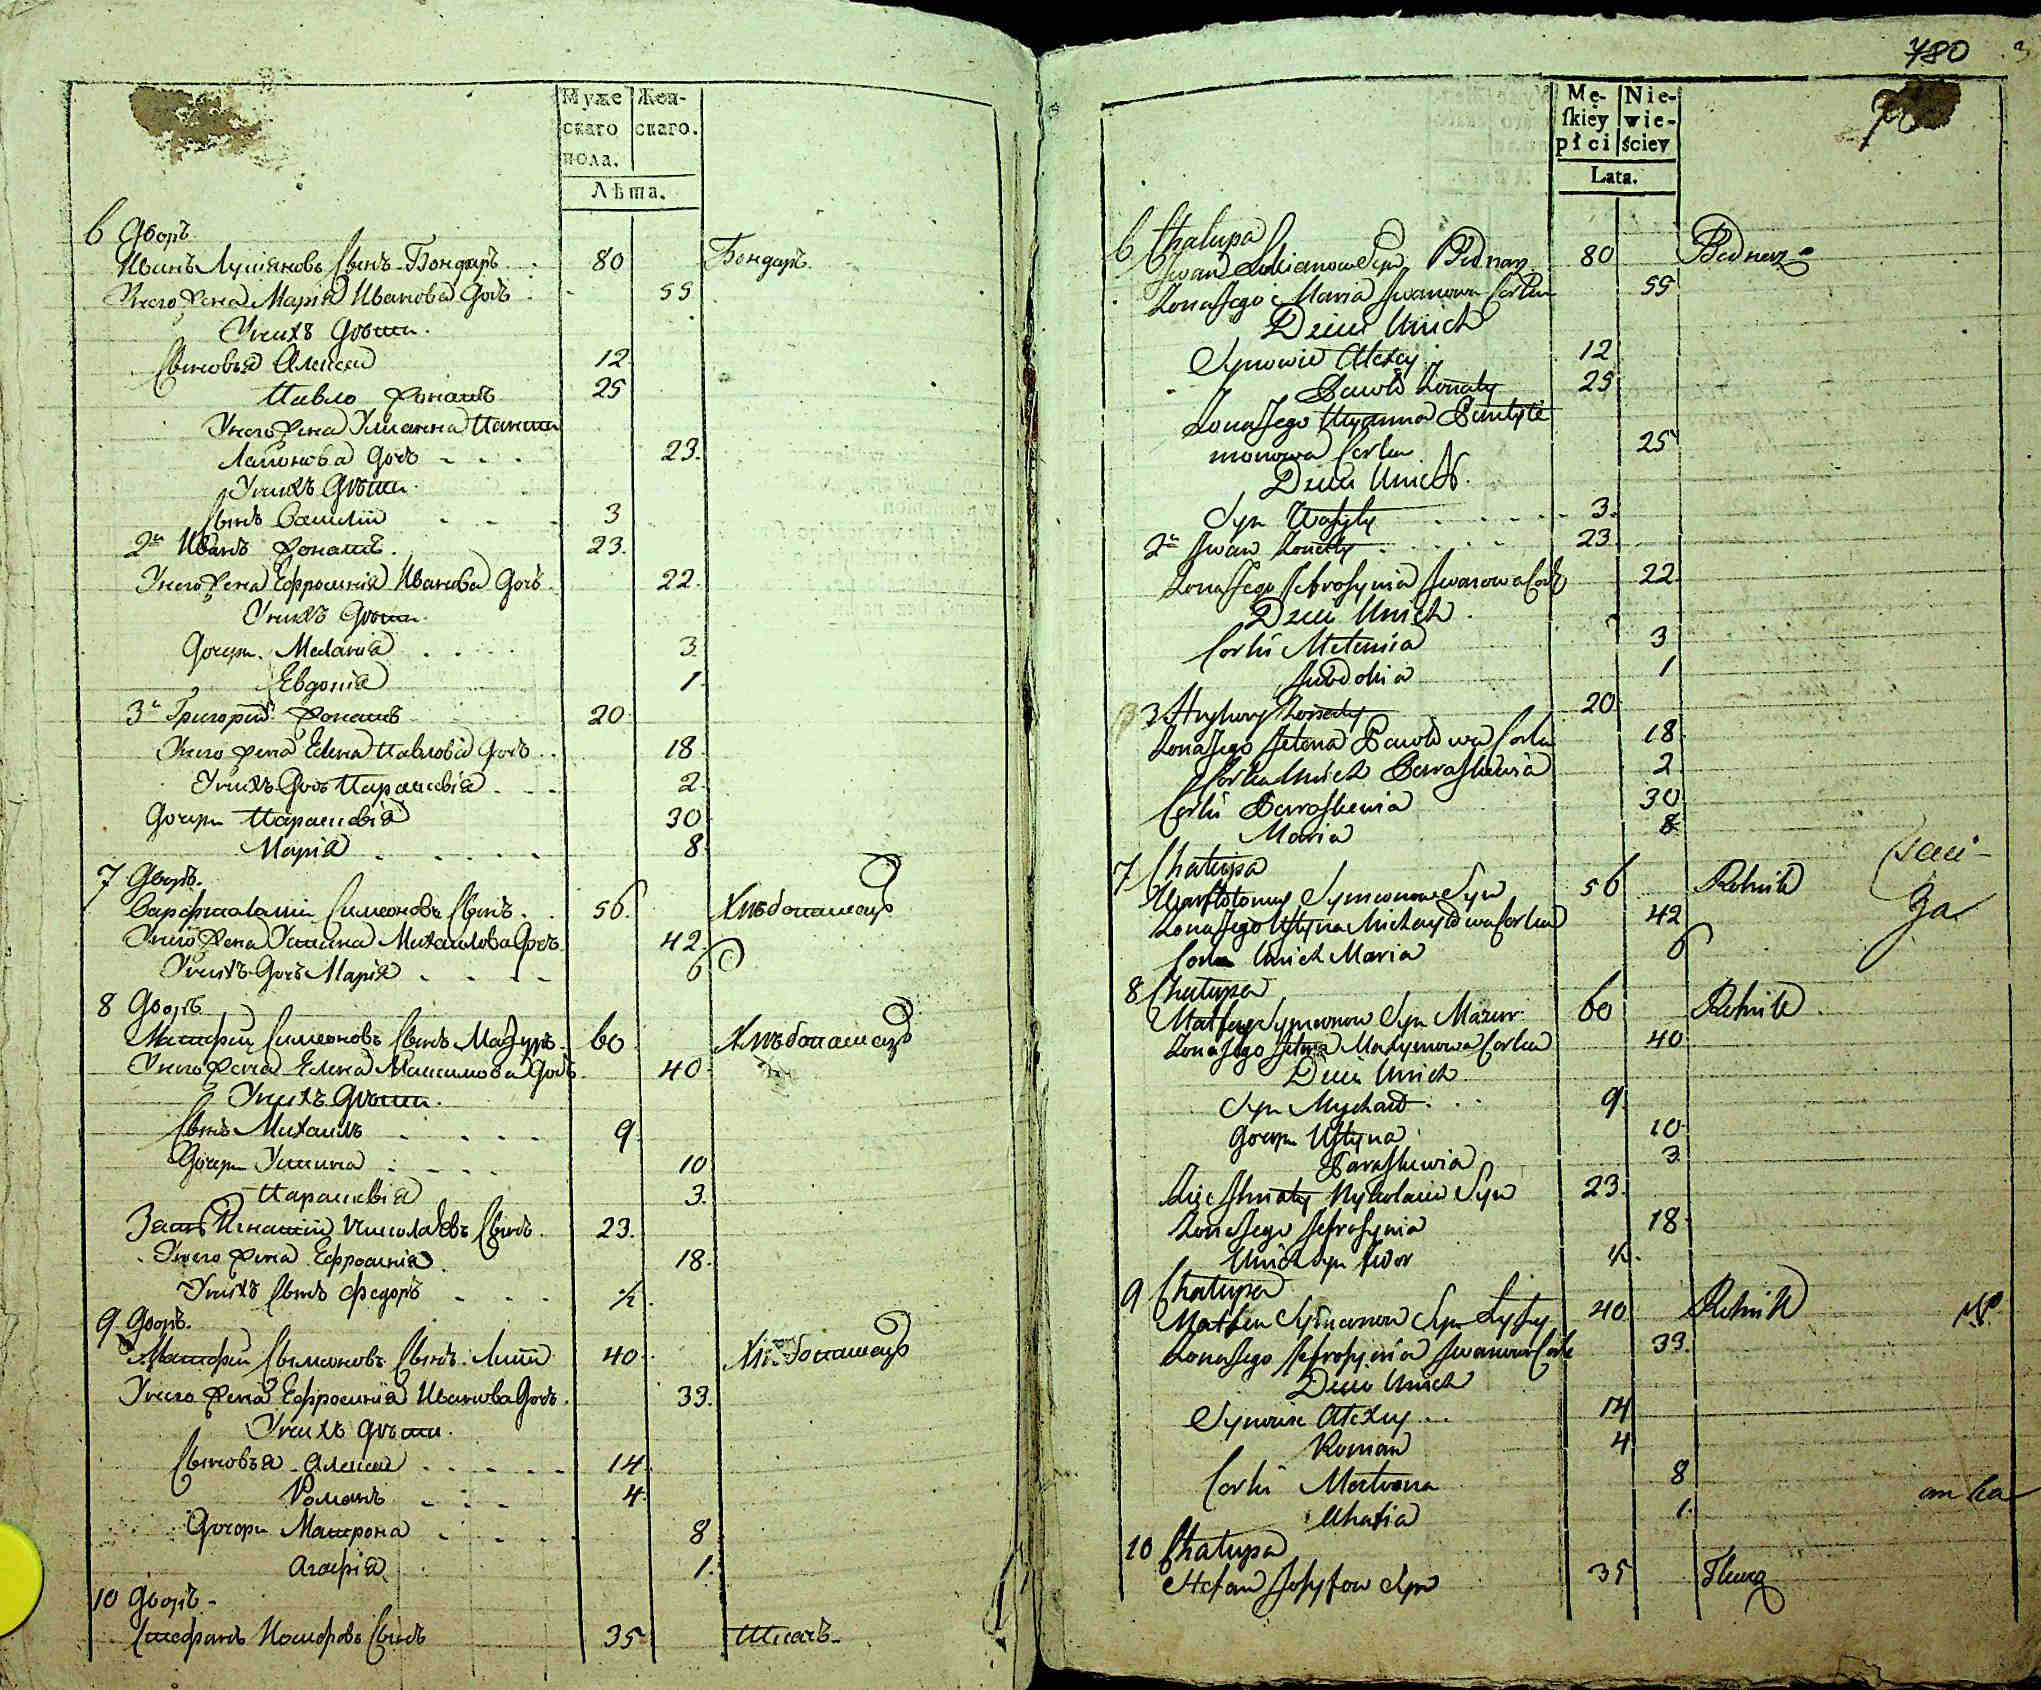 Муже
скаго
пола.
Жен-
скаго.
Лѣта.
6 Дворъ
Иванъ Лукіяновъ Сынъ Бондаръ 80 Бондаръ
У него жена Марія Иванова Дочь 55
У нихъ дѣти.
Сыновья Алексей 12
Павло жонатъ 25
У него жена Улианна Панти
лимонова Дочь 23.
У нихъ дѣти
Сынъ Василій 3
2й Иванъ жонатъ. 23.
У него жена Ефросинія Иванова Дочь 22.
У нихъ дѣти
Дочери Меланія 3
Евдокія 1
3й Григорій жонатъ 20
У него жена Елена Павлова Дочь 18
У нихъ Дочь Параскевія 2.
Дочери Параскевія 30
Марія 8
7 Дворъ.
Варфоломей Симеоновъ Сынъ. 56. Хлѣбопашецъ
У него жена Устина Михайлова Дочь 42.
У нихъ Дочь Марія 6
8 Дворъ
Матфей Симеоновъ Сынъ Мазуръ 60 Хлѣбопашецъ
У него жена Елена Максимова Дочь 40
У нихъ дѣти.
Сынъ Михаилъ 9
Дочери Устина 10
Параскевія 3.
Зять Игнатій Николаевъ Сынъ. 23.
У него жена Ефросинія 18.
У нихъ Сынъ Федоръ ½.
9 Дворъ.
Матфей Симеоновъ Сынъ 40 Хлѣбопашецъ
У него жена Ефросинія Иванова Дочь. 33.
У нихъ дѣти.
Сыновья Алексей 14
Романъ 4
Дочери Матрона 8
Агафія 1.
10 Дворъ
Стефанъ Іосифовъ Сынъ 35 Ткачъ
780
Mę-
ſkiey
płci
Nie-
wie-
ściey
Lata.
6 Chałupa
Jwan Łukianow Syn Bednarz 80 Bednarz
Żona Jego Maria Jwanowa Corka 55
Dzieci Unich
Synowie Alexey 12
Pawło Żonaty 25
Żona Jego Ulyanna Panteli
monowa Corka 25
Dzieci Unich.
Syn Wasyly 3.
2й Jwan Żonaty 23
Żona Jego Jefrosynia Jwanowa Corka 22
Dzieci Unich
Corki Melania 3
Juwdokia 1
3 Hryhory Żonaty 20
Żona Jego Jelena Pawłowa Corka 18
Corka Unich Paraskewia 2
Corki Paraskewia 30
Maria 8
7 Chałupa
Warfłołomey Symeonow Syn 56 Rolnik
Żona Jego Ustyna Michayłowa Corka 42
Corka Unich Maria 6
8 Chałupa
Matfey Symeonow Syn Mazur 60 Rolnik
Żona Jego Jelena Maxymowa Corka 40
Dzieci Unich
Syn Mychaił 9
Дочери Ustyna 10
Paraskewia 3
Zięć Ihnaty Nykołaiew Syn 23.
Żona Jego Jefrosynia 18
Unich Syn Fedor ½.
9 Chałupa
Matfey Symeonow Syn Łysy 40 Rolnik
Żona Jego Jefrosynia Jwanowa Corka 33.
Dzieci Unich
Synowie Alexey 14
Roman 4
Corki Matrona 8
Ahafia 1.
10 Chałupa
Stefan Josyfow Syn 35 Tkacz